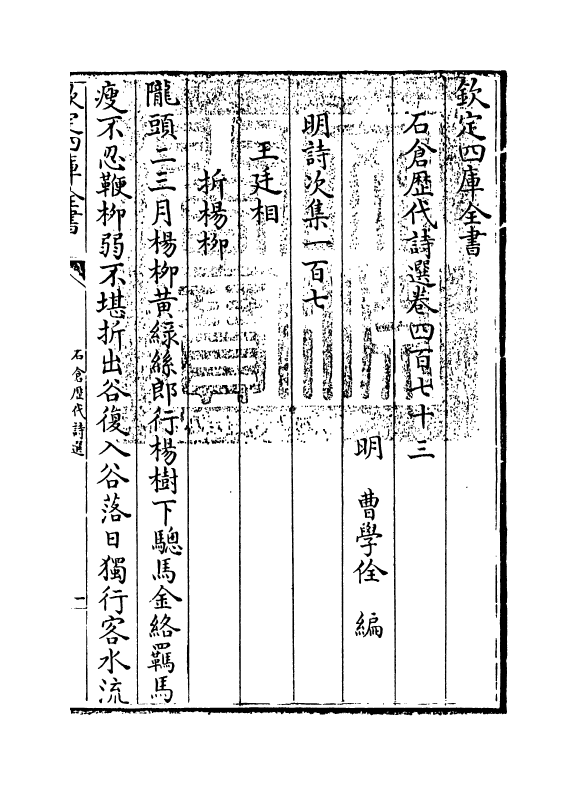 欽定四庫全書
石倉歷代詩選卷四百七十三
明　曹學佺　編
明詩次集一百七
王廷相
折楊柳
隴頭二三月楊柳黃緑絲郎行楊樹下驄馬金絡羈馬
瘦不忍鞭柳弱不堪折出谷復入谷落日獨行客水流
欽定四庫全書
石倉歷代詩選
一